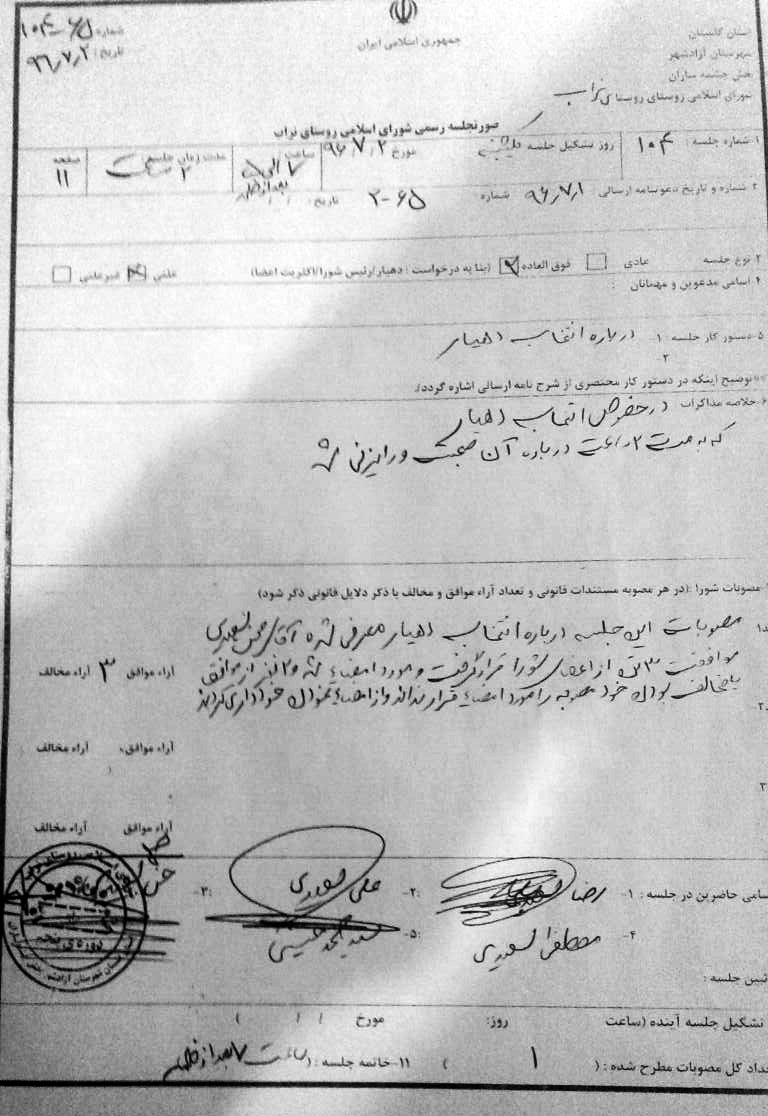 جمهوری اسلامی ایران
استان گلستان
شهرستان آزادشهر
بخش چشمه ساران
شورای اسلامی روستای روستای نراب
شماره: ۶۵-۱۰۴
تاریخ: ۹۶٫۷٫۲
صورتجلسه رسمی شورای اسلامی روستای نراب
۱-شماره جلسه: ۱۰۴ روز تشکیل جلسه مورخ ۹۶٫۷٫۲ ساعت ۵ الی ۷ بعد از ظهر مدت زمان جلسه: ۲ ساعت صفحه ۱۱
۲-شماره و تاریخ دعوتنامه ارسالی: ۹۶٫۷٫۱ شماره ۲-۶۵ تاریخ: / /
۳-نوع جلسه عادی فوق العاده (بنا به درخواست: دهیار/رئیس شورا/اکثریت اعضا) علنی غیرعلنی
۴-اسامی مدعوین و مهمانان :
۵-دستور کار جلسه: ۱- درباره انتخاب دهیار
۲-
**توضیح اینکه در دستور کار مختصری از شرح نامه ارسالی اشاره گردد).
۶-خلاصه مذاکرات در خصوص انتخاب دهیار
که به مدت ۲ ساعت درباره آن صحبت و رایزنی شد
مصوبات شورا: (در هر مصوبه مستندات قانونی و تعداد آراء موافق و مخالف با ذکر دلایل قانونی ذکر شود)
مصوبات این جلسه درباره انتخاب دهیار معرفی شده آقای محسن سعیدی
موافقت ۳ تن از اعضای شورا قرار گرفت و مورد امضاء شد و ۲ نفر از موافق
یا مخالف بودن خود مصوبه را مورد امضاء قرار نداند و از امضاء نمودن خودداری کردند
آراء موافق ۳ آراء مخالف
۲.
آراء موافق: آراء مخالف
۳
آراء موافق آراء مخالف
اسامی حاضرین در جلسه: ۱- رضا ۲- علی سعیدی ۳-
۴- مصطفی سعیدی ۵- سید احمد حسینی
تشکیل جلسه آینده (ساعت روز: مورخ / / )
تعداد کل مصوبات مطرح شده: ( ۱ ) ۱۱-خاتمه جلسه: (ساعت ۷ بعد از ظهر